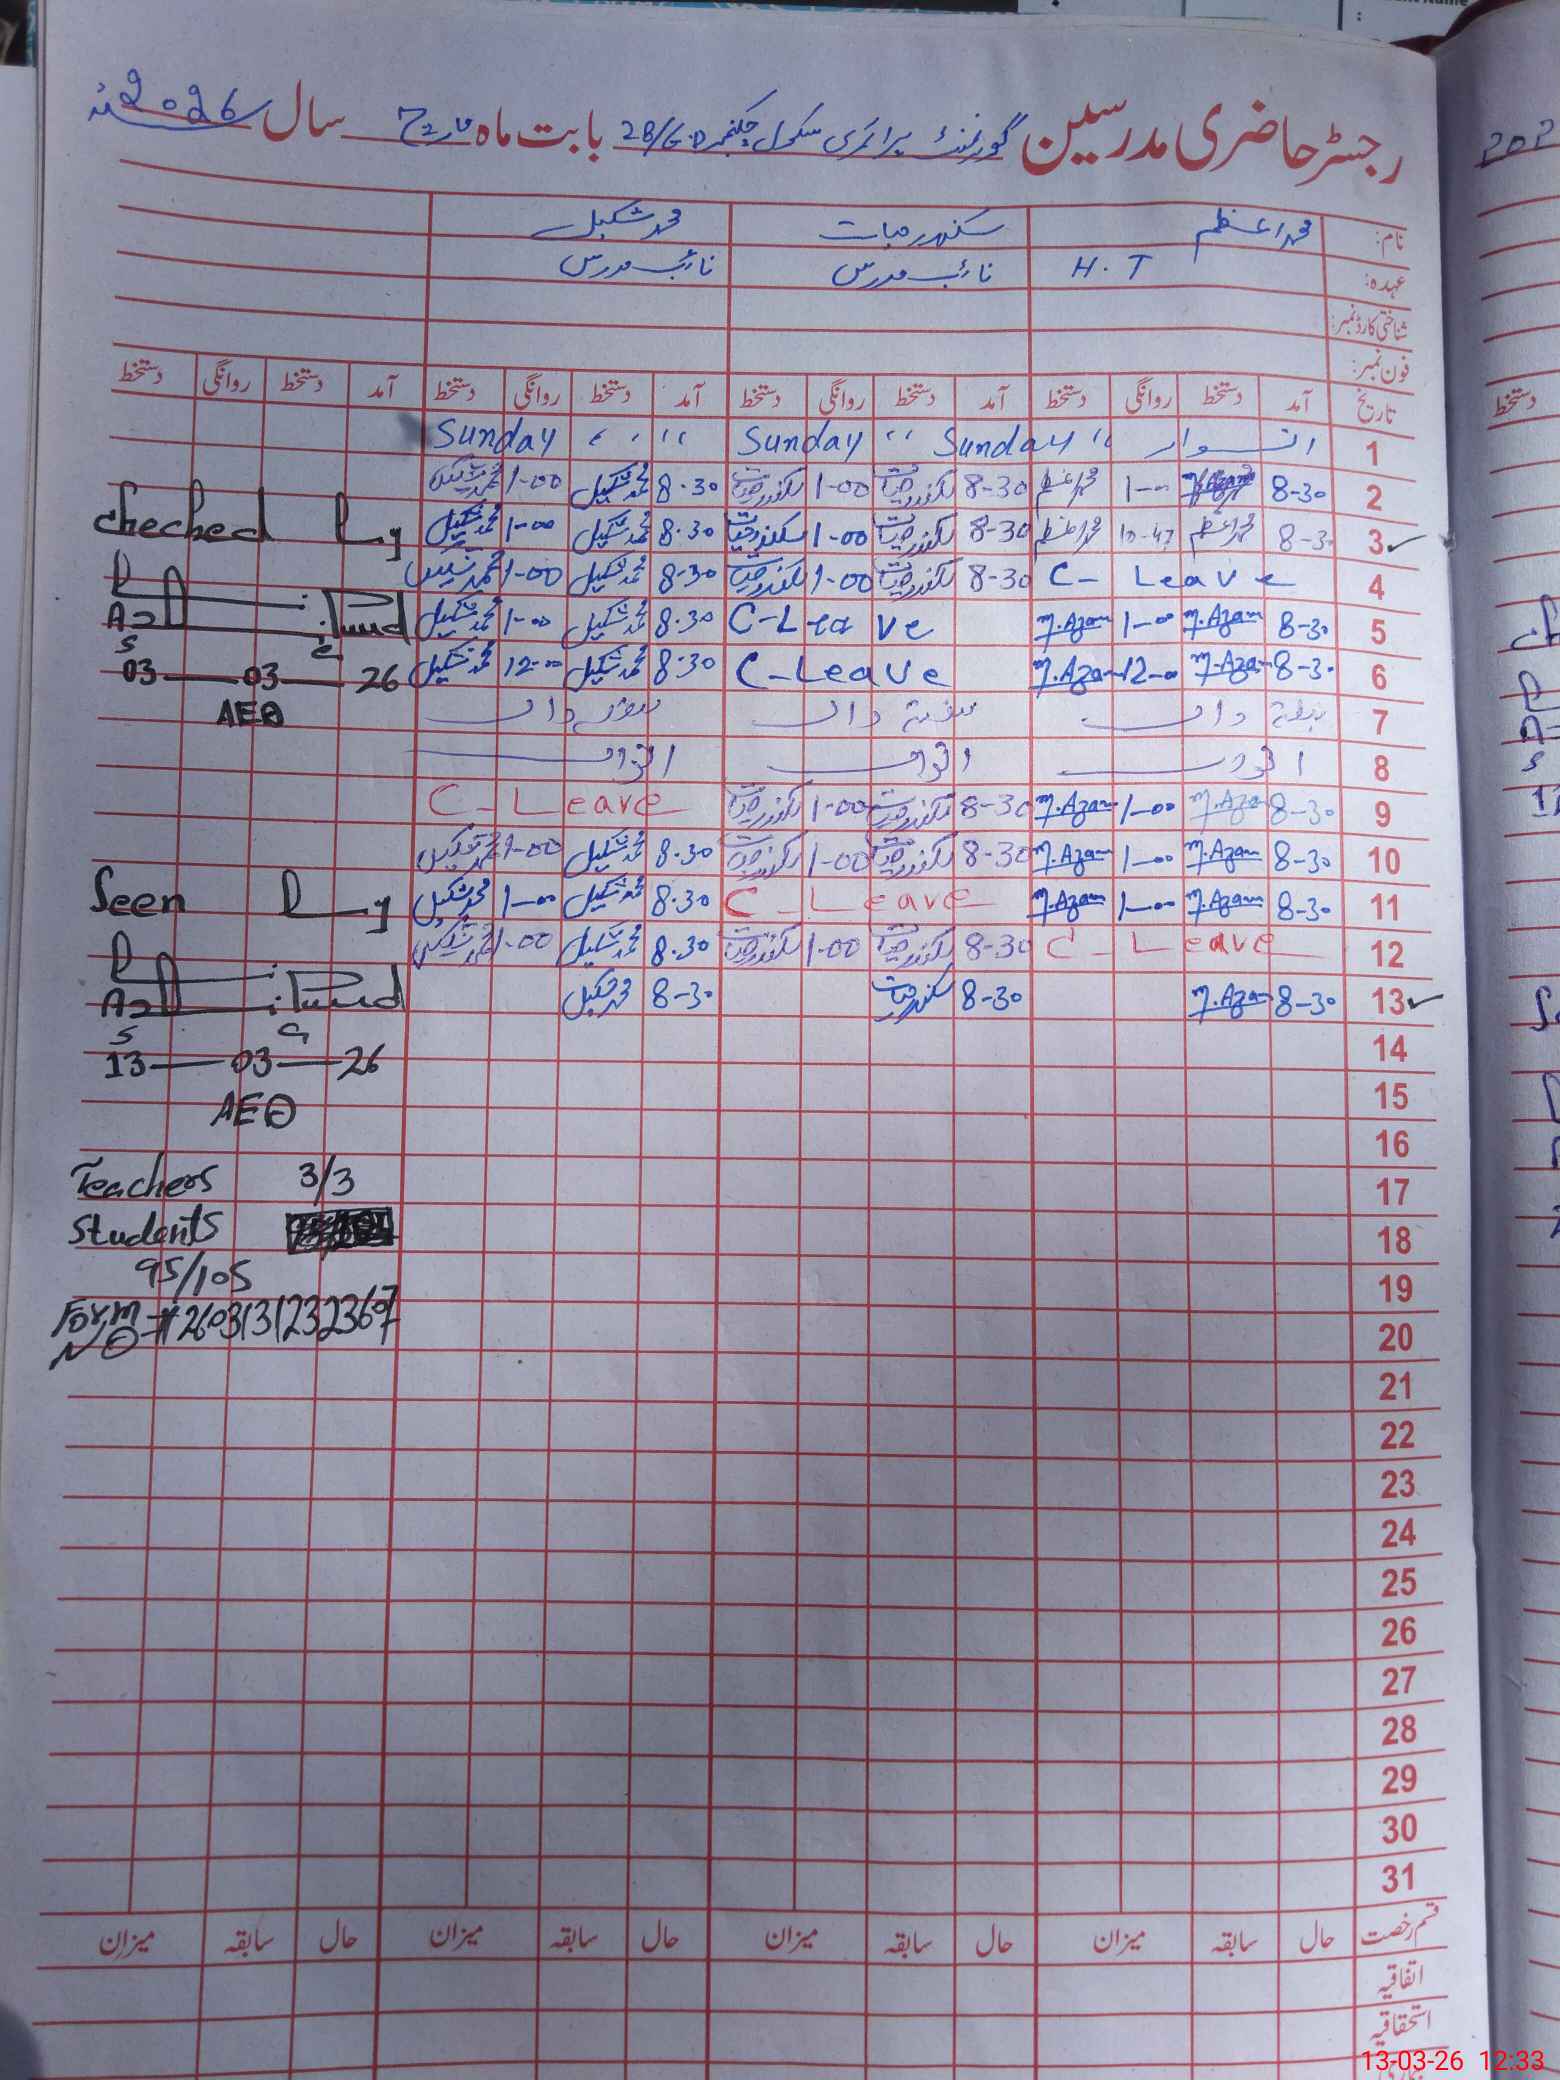 رجسٹر حاضری مدرسین گورنمنٹ پرائمری سکول چکنمبر 28/G.D بابت ماہ مارچ سال 2026ء
نام: محمد اعظم سکندر حیات محمد شکیل
عہدہ: H.T نائب مدرس نائب مدرس
شناختی کارڈ نمبر:
فون نمبر:
تاریخ آمد دستخط روانگی دستخط آمد دستخط روانگی دستخط آمد دستخط روانگی دستخط آمد دستخط روانگی دستخط
1 اتوار Sunday " Sunday " Sunday
2 8-30 M.Azam 1-00 محمد اعظم 8-30 سکندر حیات 1-00 سکندر حیات 8.30 محمد شکیل 1-00 محمد شکیل
3 8-30 محمد اعظم 10-47 محمد اعظم 8-30 سکندر حیات 1-00 سکندر حیات 8.30 محمد شکیل 1-00 محمد شکیل
4 C-Leave 8-30 سکندر حیات 1-00 سکندر حیات 8.30 محمد شکیل 1-00 محمد شکیل
5 8-30 M.Azam 1-00 M.Azam C-Leave 8.30 محمد شکیل 1-00 محمد شکیل
6 8-30 M.Azam 12-00 M.Azam C-Leave 8.30 محمد شکیل 12-00 محمد شکیل
7 ہفتہ
8 اتوار اتوار اتوار
9 8-30 M.Azam 1-00 M.Azam 8-30 سکندر حیات 1-00 سکندر حیات C-Leave
10 8-30 M.Azam 1-00 M.Azam 8-30 سکندر حیات 1-00 سکندر حیات 8.30 محمد شکیل 1-00 محمد شکیل
11 8-30 M.Azam 1-00 M.Azam C-Leave 8.30 محمد شکیل 1-00 محمد شکیل
12 C-Leave 8-30 سکندر حیات 1-00 سکندر حیات 8.30 محمد شکیل 1-00 محمد شکیل
13 8-30 M.Azam 8-30 سکندر حیات 8-30 محمد شکیل
14
15
16
17
18
19
20
21
22
23
24
25
26
27
28
29
30
31
Checked By
03-03-26
AEO
Seen By
13-03-26
AEO
Teachers 3/3
Students
95/105
Form
NO # 2603131232367
قسم رخصت حال سابقہ میزان حال سابقہ میزان حال سابقہ میزان حال سابقہ میزان
اتفاقیہ
استحقاقیہ
13-03-26 12:33